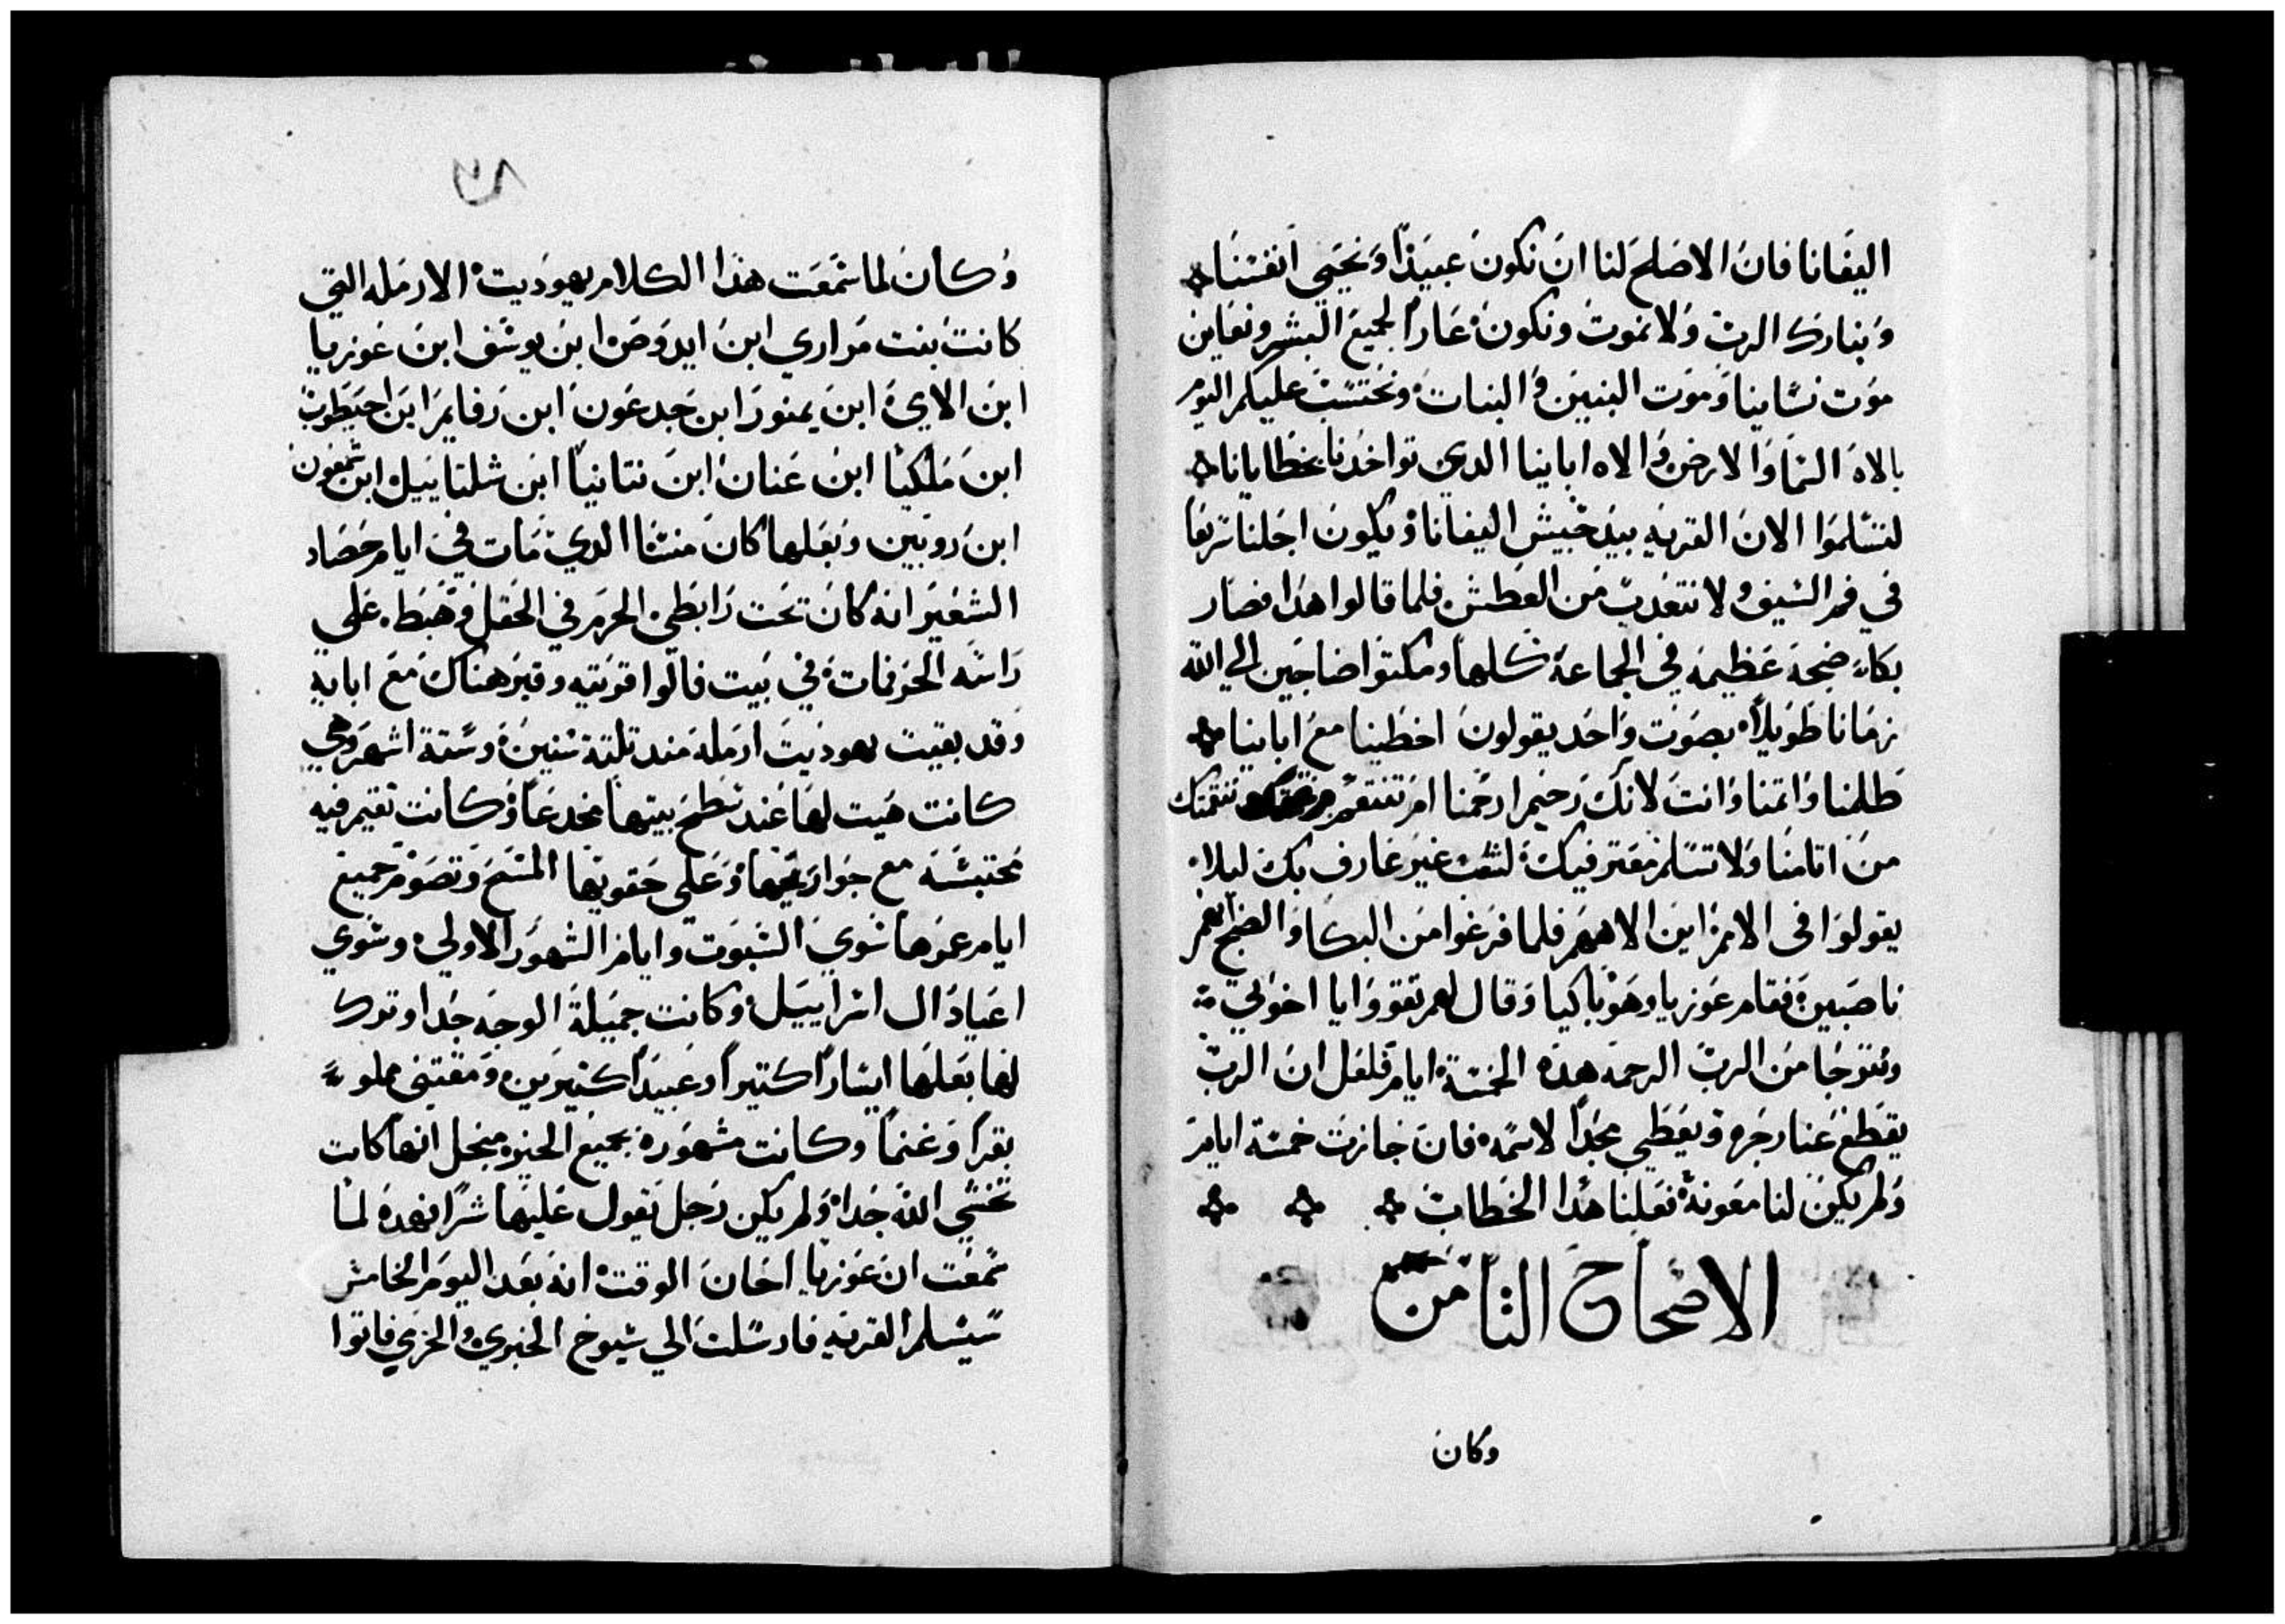 اليفانا فان الاصلح لنا ان نكون عبيدًا ونحيي انفسنا
ونبارك الرب ولا نموت ونكون عارًا لجميع البشر ونعاين
موت نسانينا وموت البنين والبنات ونحتسب عليكم اليوم
بالاه السما والارض والاه اباينا الدي تواخدنا بخطايانا
لتسلموا الان القريه بيد جيش اليفانا ويكون اجلنا سريعًا
في فم السيف ولا نتعدب من العطش فلما قالوا هدا فصار
بكاء ضجه عظيمه في الجماعة كلها ومكتوا ضاجين الي الله
زمانا طويلاً بصوت واحد يقولون اخطينا مع اباينا
ظلمنا واتمنا وانت لانك رحيم ارحمنا ام تنتقم بنقمتك
من اتامنا ولا تسلم معترفيك لشعب غير عارف بك ليلا
يقولوا في الامم اين الاههم فلما فرغوا من البكا والضجيج
ناصبين فقام عوزيا وهو باكيا وقال لهم تقووا يا اخوتي
ونترجا من الرب الرحمه هده الخمسة ايام فلعل ان الرب
يقطع عنا رجزه ويعطي مجدًا لاسمه فان جازت خمسة ايام
ولم يكن لنا معونة فعلنا هدا الخطاب
الاصحاح الثامن
وكان
٨٦
وكان لما سمعت هدا الكلام يهوديت الارمله التي
كانت بنت مراري ابن ايدوص ابن يوسف ابن عوزيا
ابن الاي ابن يمنور ابن جدعون ابن رفايم ابن احيطوب
ابن ملكيا ابن عنان ابن نتانيا ابن شلتاييل ابن شمعون
ابن روبين وبعلها كان منسا الدي مات في ايام حصاد
الشعير انه كان تحت رابطي الحزم في الحقل وهبط علي
راسه الحرفات في بيت فالوا قريته وقبر هناك مع ابايه
وقد بقيت يهوديت ارمله مند تلتة سنين وستة اشهر وهي
كانت هيت لها عند سطح بيتها مخدعًا وكانت تقيم فيه
محتبسه مع جواريها وعلي حقويها المسح وتصوم جميع
ايام عمرها سوي السبوت وايام الشهور الاولي وسوي
اعياد ال اسراييل وكانت جميلة الوجه جدا وترك
لها بعلها ايسارًا كتيرًا وعبيدًا كتيرين ومقتني مملوء
بقرًا وغنمًا وكانت مشهورة بجميع الخير من اجل انها كانت
تخشي الله جدا ولم يكن رجل يقول عليها شرًا فهده لما
سمعت ان عوزيا اخان الوقت انه بعد اليوم الخامس
سيسلم القريه فارسلت الي شيوخ الخبري والخرمي فاتوا